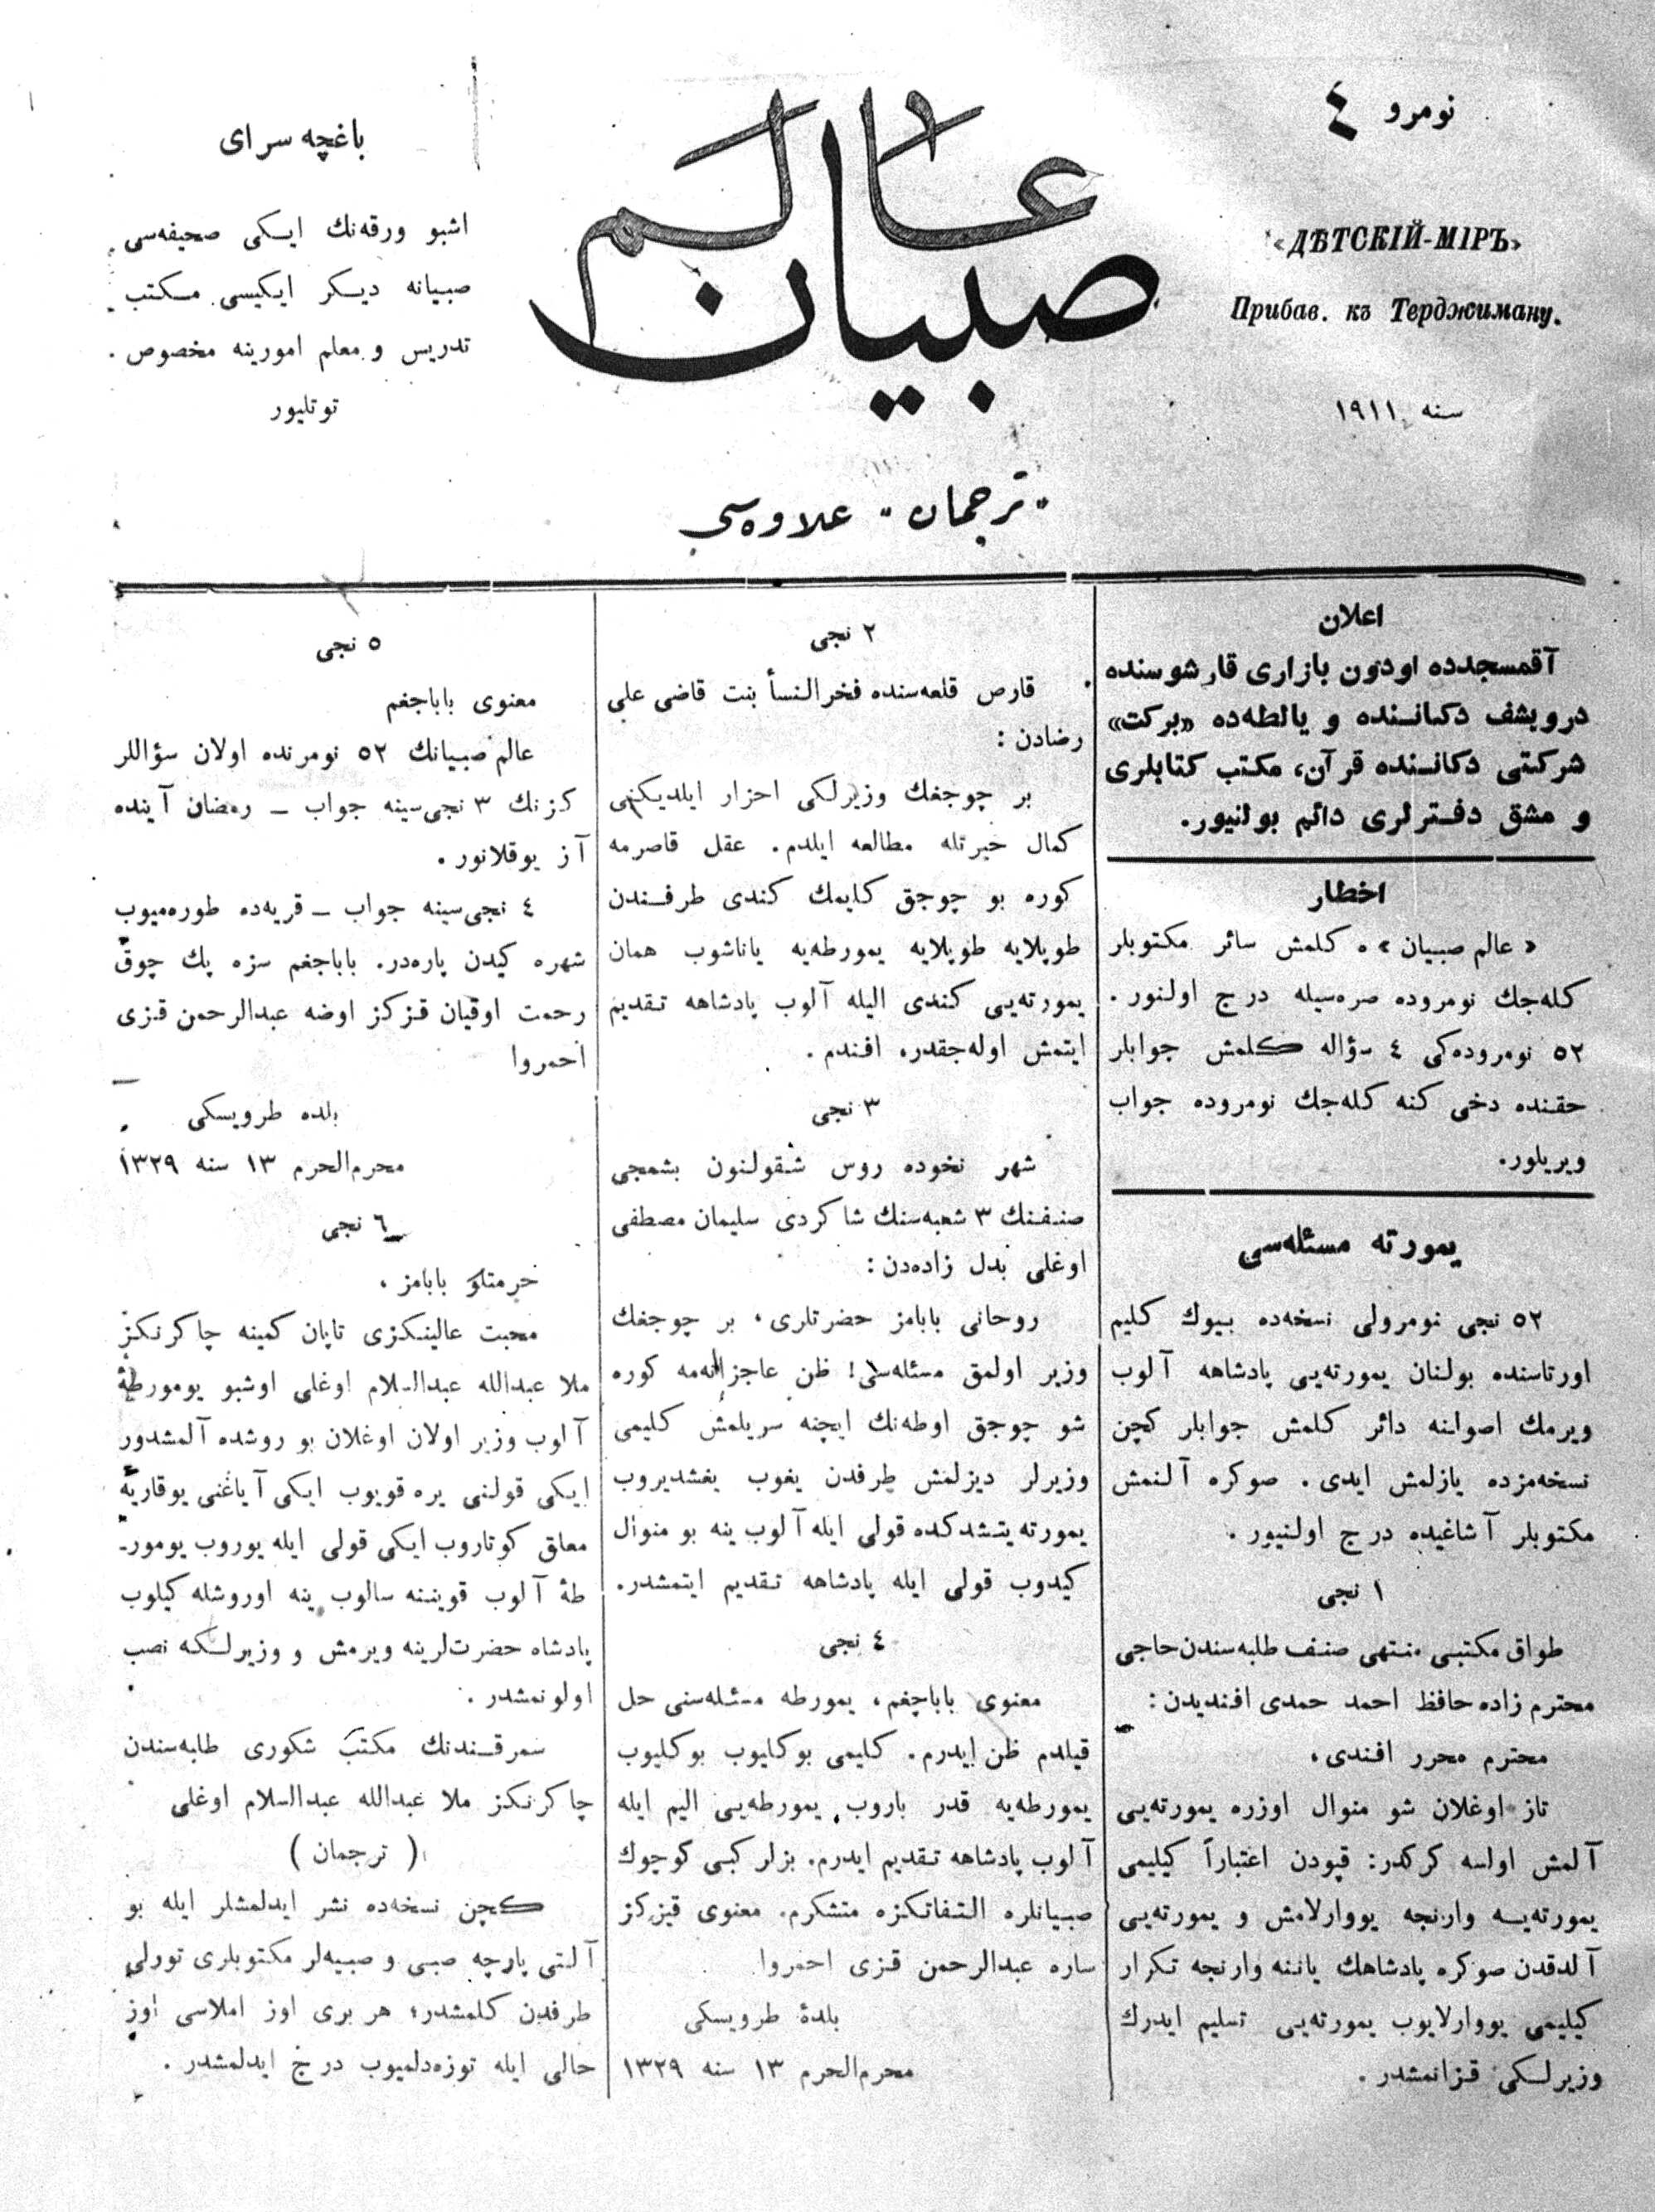 نومرو ٤
«ДѢТСКІЙ-МІРЪ»
Прибав. къ Терджиману.
سنه ١٩١١
عالم
صبيان
„ترجمان“ علاوه‌سی
باغچه سرای
اشبو ورقه‌نك ایکی صحیفه‌سی
صبیانه دیکر ایکیسی مکتب
تدریس و معلم امورینه مخصوص
توتلیور
اعلان
آقمسجدده اودون بازاری قارشوسنده
درویشف دکاننده و یالطه‌ده «برکت»
شرکتی دکاننده قرآن، مکتب کتابلری
و مشق دفترلری دائم بولنیور.
اخطار
«عالم صبیان» ه کلمش سائر مکتوبلر
کله‌جك نومروده صره‌سیله درج اولنور.
٥٢ نومروده‌کی ٤ سؤاله کلمش جوابلر
حقنده دخی کنه کله‌جك نومروده جواب
ویریلور.
یمورته مسئله‌سی
٥٢ نجی نومرولی نسخه‌ده بیوك کلیم
اورتاسنده بولنان یمورته‌یی پادشاهه آلوب
ویرمك اصولنه دائر کلمش جوابلر کچن
نسخه‌مزده یازلمش ایدی. صوکره آلنمش
مکتوبلر آشاغیده درج اولنیور.
١ نجی
طواق مکتبی منتهی صنف طلبه‌سندن حاجی
محترم زاده حافظ احمد حمدی افندیدن:
محترم محرر افندی،
تاز اوغلان شو منوال اوزره یمورته‌یی
آلمش اولسه کرکدر: قپودن اعتباراً کیلیمی
یمورته‌یه وارنجه یووارلامش و یمورته‌یی
آلدقدن صوکره پادشاهك یاننه وارنجه تکرار
کیلیمی یووارلایوب یمورته‌یی تسلیم ایدرك
وزیرلکی قزانمشدر.
٢ نجی
قارص قلعه‌سنده فخرالنسأ بنت قاضی علی
رضادن:
بر چوجغك وزیرلکی احزار ایلدیکنی
کمال حیرتله مطالعه ایلدم. عقل قاصرمه
کوره بو چوجق کلیمك کندی طرفندن
طوپلایه طوپلایه یمورطه‌یه یاناشوب همان
یمورته‌یی کندی الیله آلوب پادشاهه تقدیم
ایتمش اوله‌جقدر. افندم.
٣ نجی
شهر نخوده روس شقولنون بشمجی
صنفنك ٣ شعبه‌سنك شاکردی سلیمان مصطفی
اوغلی بدل زاده‌دن:
روحانی بابامز حضرتلری، بر چوجغك
وزیر اولمق مسئله‌سی! ظن عاجزانه‌مه کوره
شو چوجق اوطه‌نك ایچنه سریلمش کلیمی
وزیرلر دیزلمش طرفدن یغوب یغشدیروب
یمورته یتشدکده قولی ایله آلوب ینه بو منوال
کیدوب قولی ایله پادشاهه تقدیم ایتمشدر.
٤ نجی
معنوی باباجغم، یمورطه مسئله‌سنی حل
قیلدم ظن ایدرم. کلیمی بوکلیوب بوکلیوب
یمورطه‌یه قدر باروب یمورطه‌یی الیم ایله
آلوب پادشاهه تقدیم ایدرم. بزلر کبی کوچوك
صبیانلره التفاتکزه متشکرم. معنوی قیزکز
ساره عبدالرحمن قزی احمروا
بلدۀ طرویسکی
محرم‌الحرم ١٣ سنه ١٣٢٩
٥ نجی
معنوی باباجغم
عالم صبیانك ٥٢ نومرنده اولان سؤاللر
کزنك ٣ نجی‌سینه جواب ــ رمضان آینده
آز یوقلانور.
٤ نجی‌سینه جواب ــ قریه‌ده طوره‌میوب
شهره کیدن پاره‌در. باباجغم سزه پك چوق
رحمت اوقیان قزکز اوضه عبدالرحمن قزی
احمروا
بلده طرویسکی
محرم‌الحرم ١٣ سنه ١٣٢٩
٦ نجی
حرمتلو بابامز،
محبت عالینکزی تاپان کمینه چاکرنکز
ملا عبدالله عبدالسلام اوغلی اوشبو یومورطۀ
آلوب وزیر اولان اوغلان بو روشده آلمشدور
ایکی قولنی یره قویوب ایکی آیاغنی یوقاریه
معلق کوتاروب ایکی قولی ایله یوروب یومور-
طۀ آلوب قویننه سالوب ینه اوروشله کیلوب
پادشاه حضرت‌لرینه ویرمش و وزیرلکه نصب
اولونمشدر.
سمرقندنك مکتب شکوری طلبه‌سندن
چاکرنکز ملا عبدالله عبدالسلام اوغلی
(ترجمان)
کچن نسخه‌ده نشر ایدلمشلر ایله بو
آلتی پارچه صبی و صبیه‌لر مکتوبلری تورلی
طرفدن کلمشدر؛ هر بری اوز املاسی اوز
حالی ایله توزه‌دلمیوب درج ایدلمشدر.